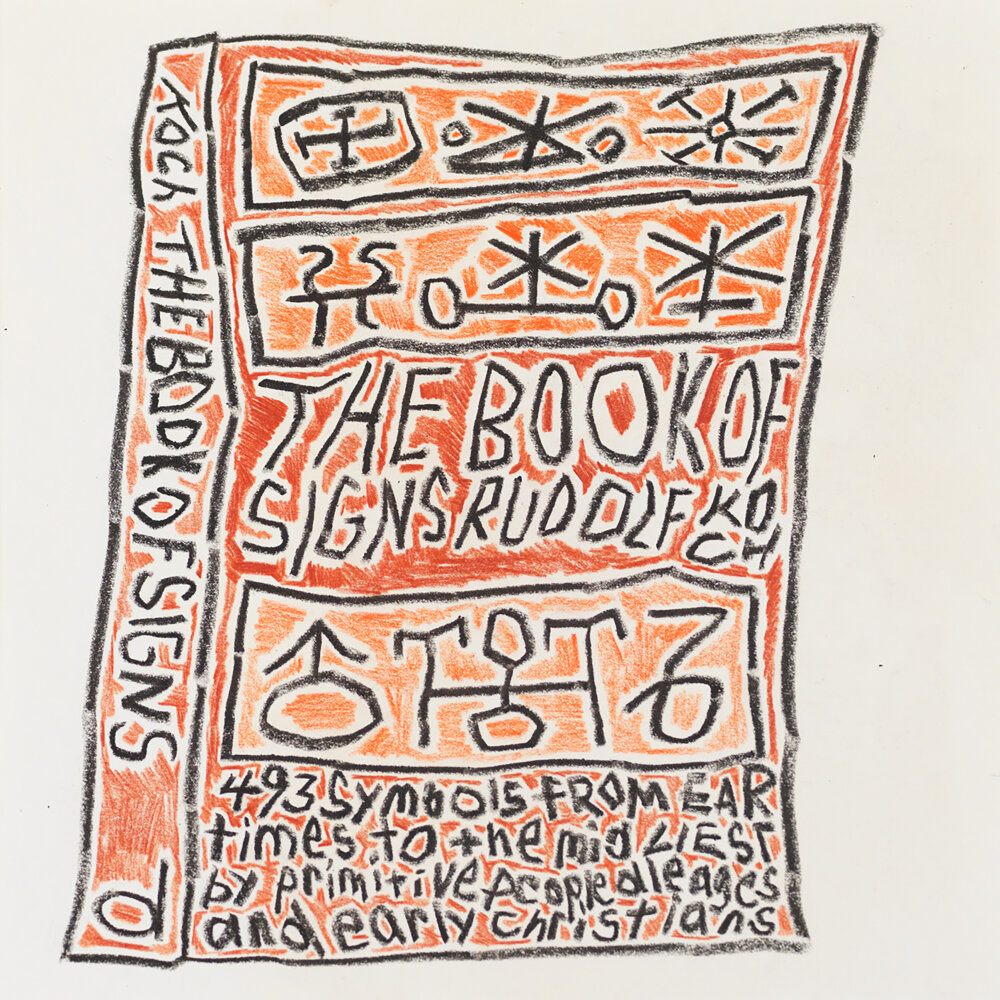 KOCH THE BOOK OF SIGNS
THE BOOK OF
SIGNS RUDOLF KO
CH
493 SYmbOlS FROM EAR
times to the mid LIEST
by primitive people dle ages
and early christians